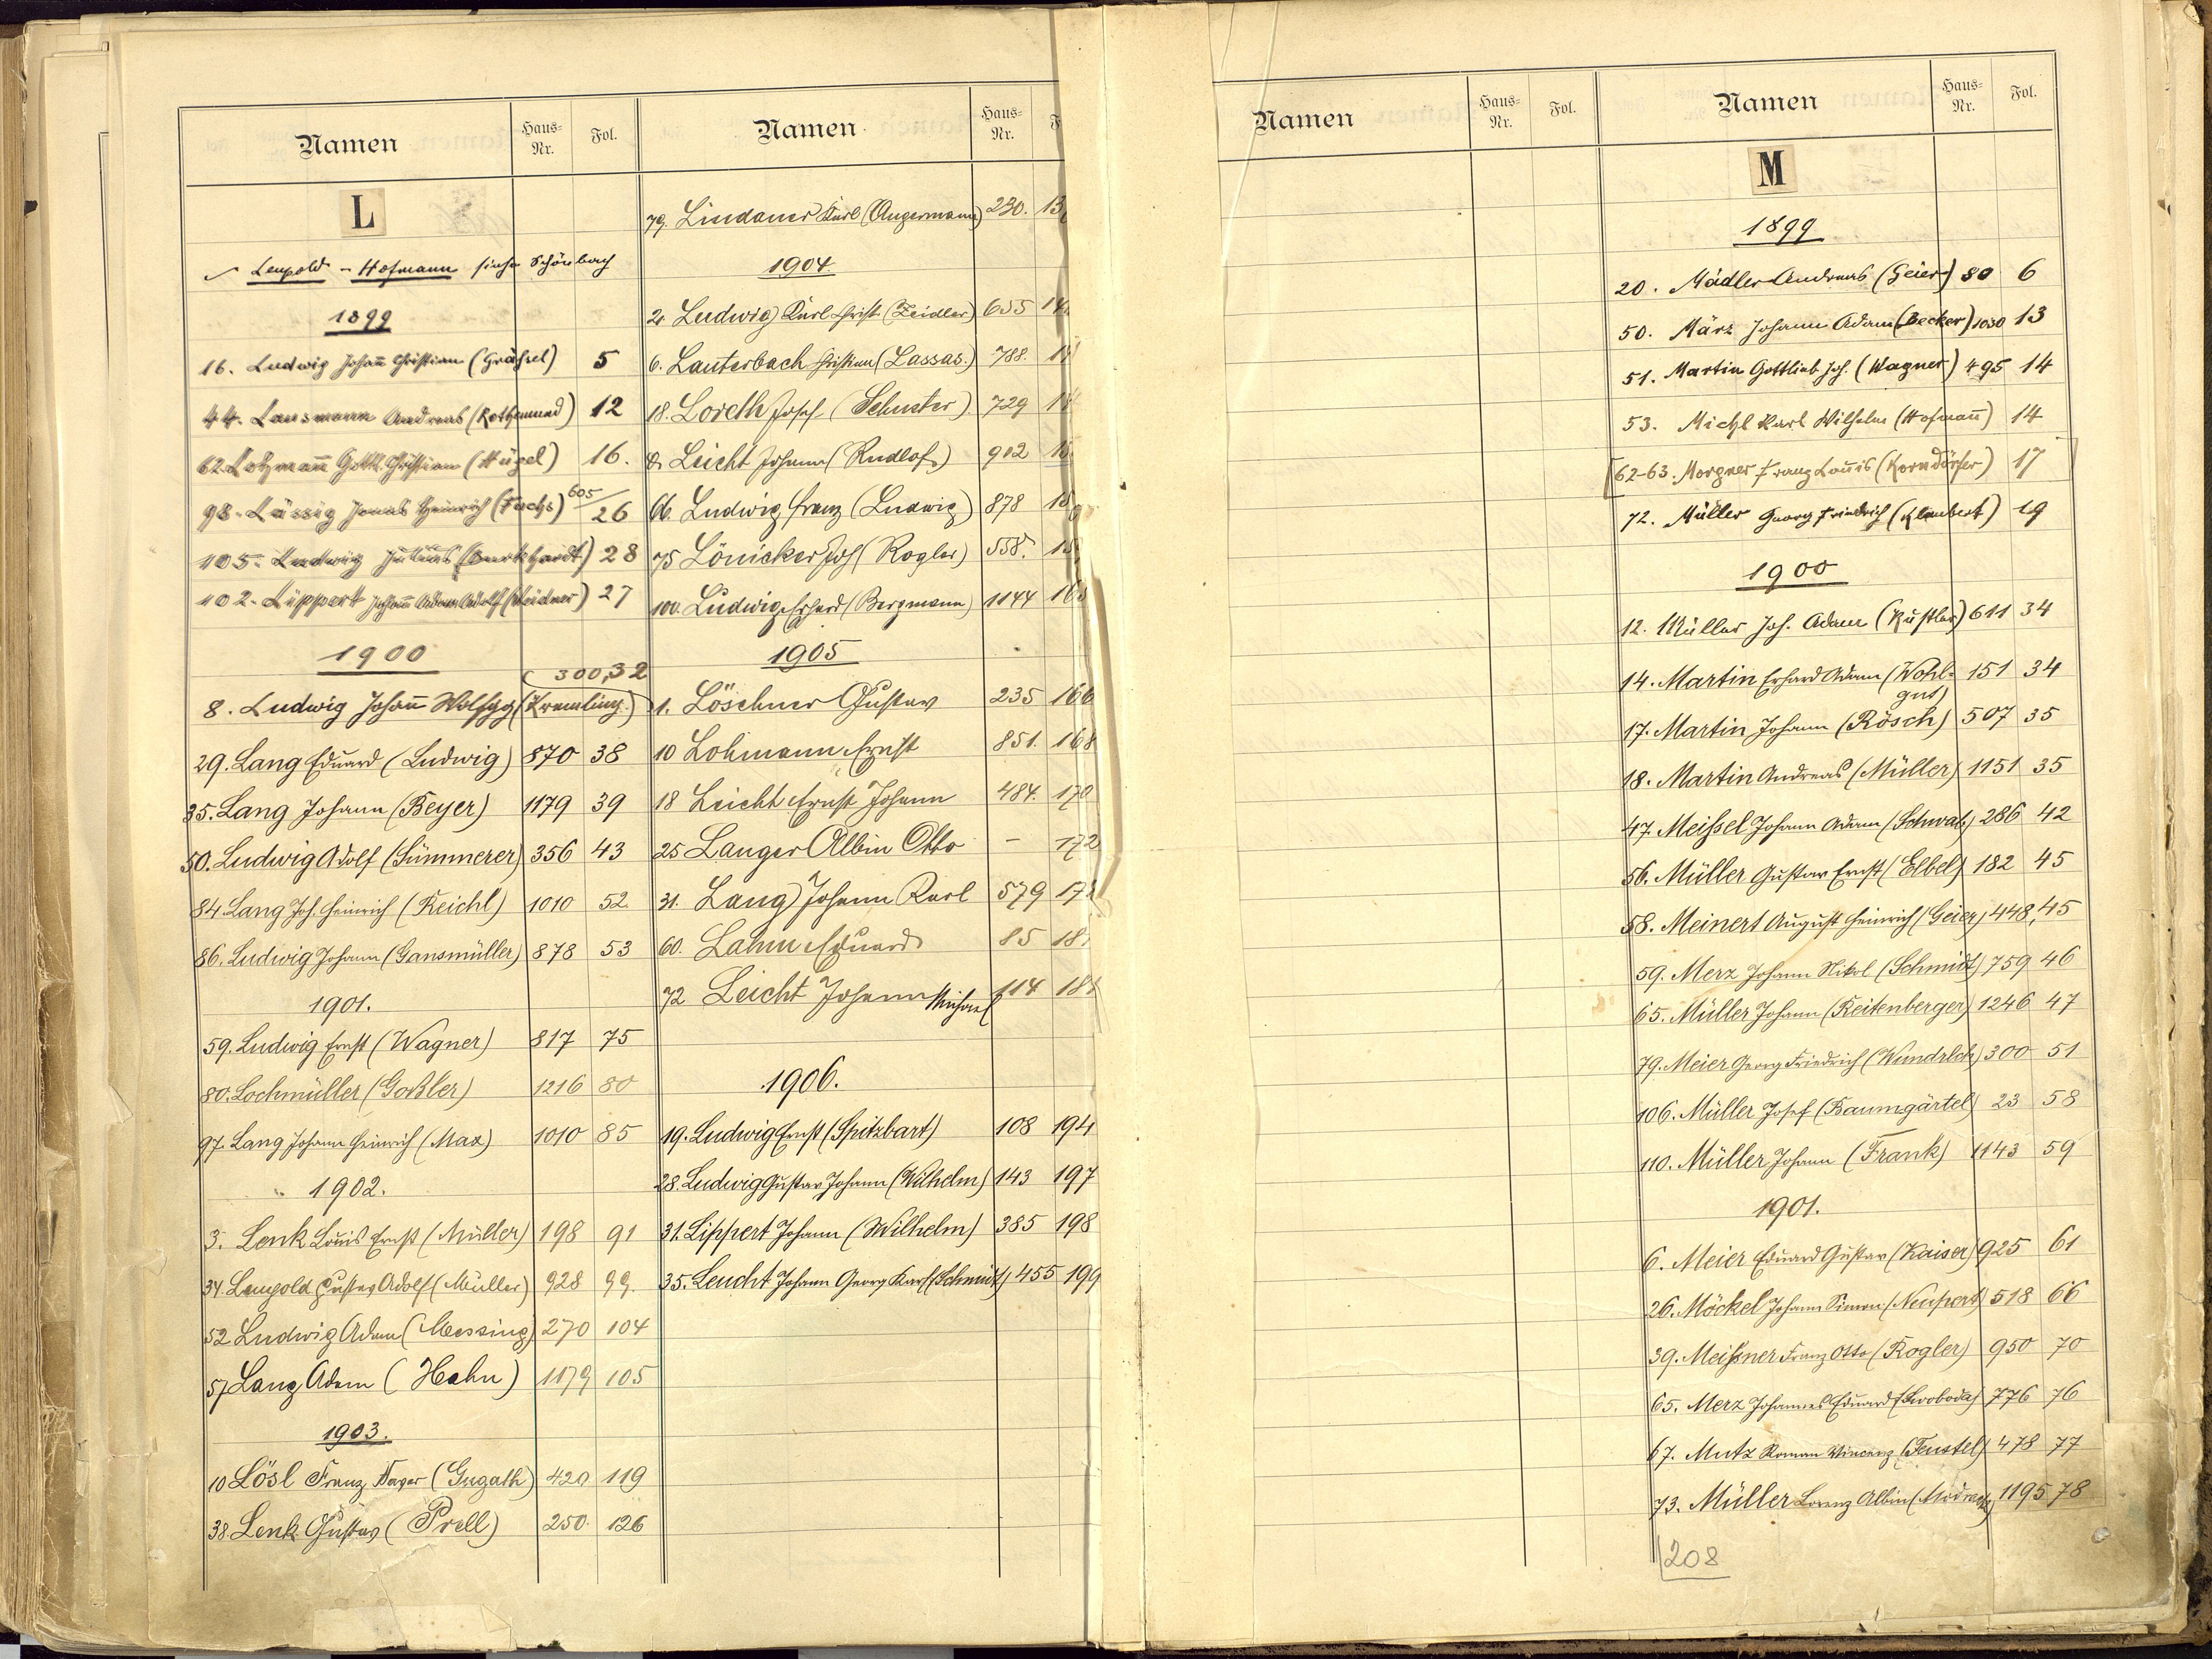 Namen Haus-Nr. Fol.
L
Leupold - Hofmann siehe Schönbach
1899
16. Ludwig Johañ Christian (Gräßel) 5
44. Lausmann Andreas (Rothemund) 12
62. Lohmañ Gottl. Christian (Hügel) 16.
98. Lässig Jonas Heinrich (Fuchs) 605/26
105. Ludwig Julius (Burkhardt) 28
102. Lippert Johañ Adam Adolf (Weidner) 27
1900
300,32
8. Ludwig Johañ Wolfgg (Kremling)
29. Lang Eduard (Ludwig) 870 38
35. Lang Johann (Beyer) 1179 39
50. Ludwig Adolf (Sümmerer) 356 43
84. Lang Joh. Heinrich (Reichl) 1010 52
86. Ludwig Johann (Gansmüller) 878 53
1901.
59. Ludwig Ernst (Wagner) 817 75
80. Lochmüller (Goßler) 1216 80
97. Lang Johann Heinrich (Max) 1010 85
1902.
3. Lenk Louis Ernst (Müller) 198 91
34. Leupold Gustav Adolf (Müller) 928 99.
52 Ludwig Adam (Messing) 270 104
57 Lang Adam (Hahn) 1179 105
1903.
10 Lösl Franz Xaver (Gugath) 420 119
38. Lenk Gustav (Prell) 250. 126
Namen Haus-Nr. F
79. Lindauer Karl (Angermann) 230. 13
1904
2. Ludwig Karl Christ (Zeidler) 655 14
6. Lauterbach Christian (Lassas.) 788. 14
18. Loreth Josef (Schuster) 729 14
Leicht Johann (Rudlof) 902 15
66. Ludwig Franz (Ludwig) 878 15
75 Lönicker Joh (Rogler) 558. 15
100. Ludwig Erhard (Bergmann) 1144 16
1905
1. Löschner Gustav 235 166
10 Lohmann Ernst 851. 168
18 Leicht Ernst Johann 484. 170
25 Langer Albin Otto - 172
31. Lang Johann Karl 579 17
60. Lahm Eduard 85 18
72 Leicht Johann Michael 114 18
1906.
19. Ludwig Ernst (Spitzbart) 108 194
28. Ludwig Gustav Johann (Wilhelm) 143 197
31. Lippert Johann (Wilhelm) 385 198
35. Leucht Johann Georg Karl (Schmidt) 455 199
Namen Haus-Nr. Fol.
Namen Haus-Nr. Fol.
M
1899
20. Mädler Andreas (Geier) 80 6
50. März Johann Adam (Becker) 1030 13
51. Martin Gottlieb Joh. (Wagner) 495 14
53. Michl Karl Wilhelm (Hofmañ) 14
[62-63. Morgner Franz Louis (Korndörfer) 17]
72. Müller Georg Friedrich (Klaubert) 19
1900
12. Müller Joh. Adam (Küstler) 611 34
14. Martin Erhard Adam (Wohl- 151 34
gut)
17. Martin Johann (Rösch) 507 35
18. Martin Andreas (Müller) 1151 35
47. Meißel Johann Adam (Schwab) 286 42
56. Müller Gustav Ernst (Elbel) 182 45
58. Meinert August Heinrich (Geier) 448, 45
59. Merz Johann Nikol (Schmidt) 759 46
65. Müller Johann (Reitenberger) 1246 47
79. Meier Georg Friedrich (Wundrlch) 300 51
106. Müller Josef (Baumgärtel) 23 58
110. Müller Johann (Frank) 1143 59
1901.
6. Meier Eduard Gustav (Kaiser) 925 61
26. Möckel Johann Simon (Neupert) 518 66
39. Meißner Franz Otto (Rogler) 950 70
65. Merz Johannes Eduard (Swoboda) 776 76
67. Mutz Roman Vincenz (Feustel) 478 77
73. Müller Lorenz Albin 1195 78
208